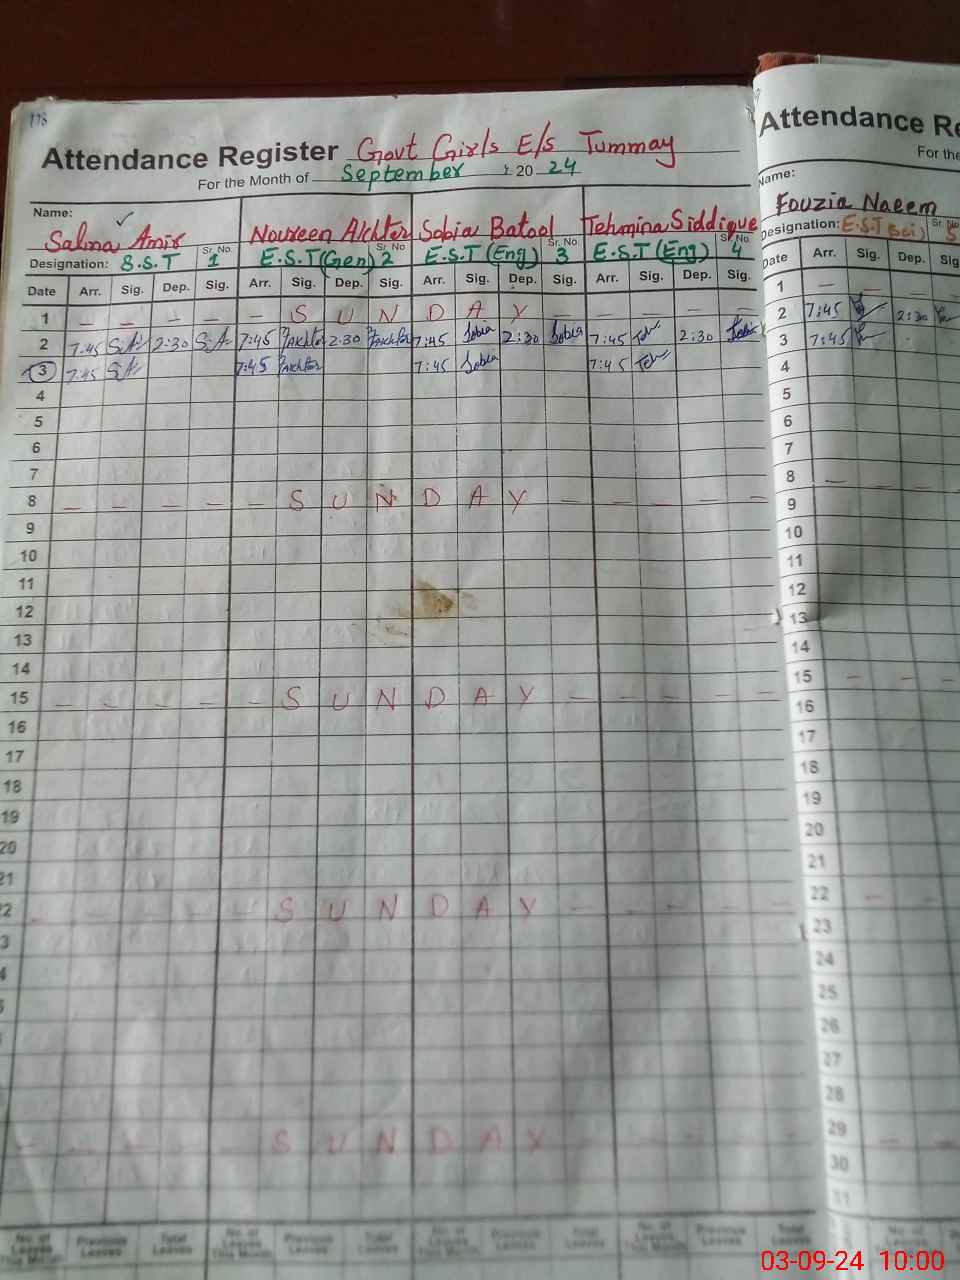 178
Attendance Register Govt Girls E/s Tummay
For the Month of September 20 24
Name:
Salma Amir Noureen Akhter Sobia Batool Tehmina Siddique
Designation: S.S.T Sr. No. 1 E.S.T(Gen) Sr. No. 2 E.S.T (Eng) Sr. No. 3 E.S.T (Eng) Sr. No. 4
Date Arr. Sig. Dep. Sig. Arr. Sig. Dep. Sig. Arr. Sig. Dep. Sig. Arr. Sig. Dep. Sig.
1 – – – – – S U N D A Y – – – – –
2 7:45 S.A 2:30 S.A 7:45 PAkhter 2:30 PAkhter 7:45 Sobia 2:30 Sobia 7:45 Teh 2:30
3 7:45 S.A 7:45 PAkhter 7:45 Sobia 7:45 Teh
4
5
6
7
8 – – – – – S U N D A Y – – – – –
9
10
11
12
13
14
15 – – – – – S U N D A Y – – – – –
16
17
18
19
20
21
2 – – – – – S U N D A Y – – – – –
3
4
S U N D A Y
No. of Leaves This Month Previous Leaves Total Leaves No. of Leaves This Month Previous Leaves Total Leaves No. of Leaves This Month Previous Leaves Total Leaves No. of Leaves This Month Previous Leaves Total Leaves
Attendance Re
For the
Name:
Fouzia Naeem
Designation: E.S.T(Sci) Sr. No 5
Date Arr. Sig. Dep. Sig
1 – –
2 7:45 2:30
3 7:45
4
5
6
7
8 – – – –
9
10
11
12
13
14
15 – – –
16
17
18
19
20
21
22 – –
23
24
25
26
27
28
29 – –
30
31
03-09-24 10:00